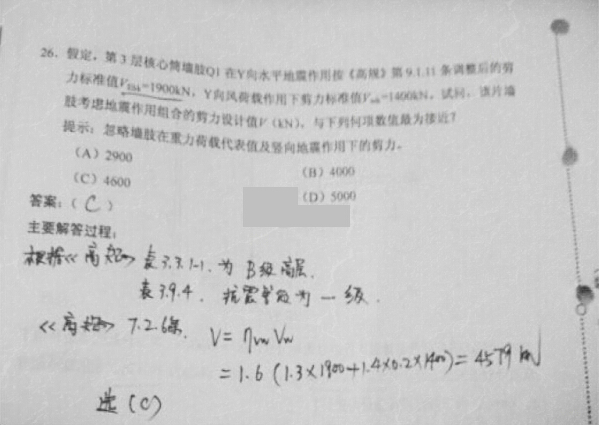 26. 假定，第3层核心筒墙肢Q1在Y向水平地震作用按《高规》第9.1.11条调整后的剪
力标准值VEhk=1900kN，Y向风荷载作用下剪力标准值Vwk=1400kN。试问，该片墙
肢考虑地震作用组合的剪力设计值V（kN），与下列何项数值最为接近？
提示：忽略墙肢在重力荷载代表值及竖向地震作用下的剪力。
（A）2900 （B）4000
（C）4600 （D）5000
答案：（C）
主要解答过程：
根据《高规》表3.3.1-1.为B级高层.
表3.9.4．抗震等级为一级．
《高规》7.2.6条. V=ηvwVw
=1.6(1.3×1900+1.4×0.2×1400)=4579kN
选(C)